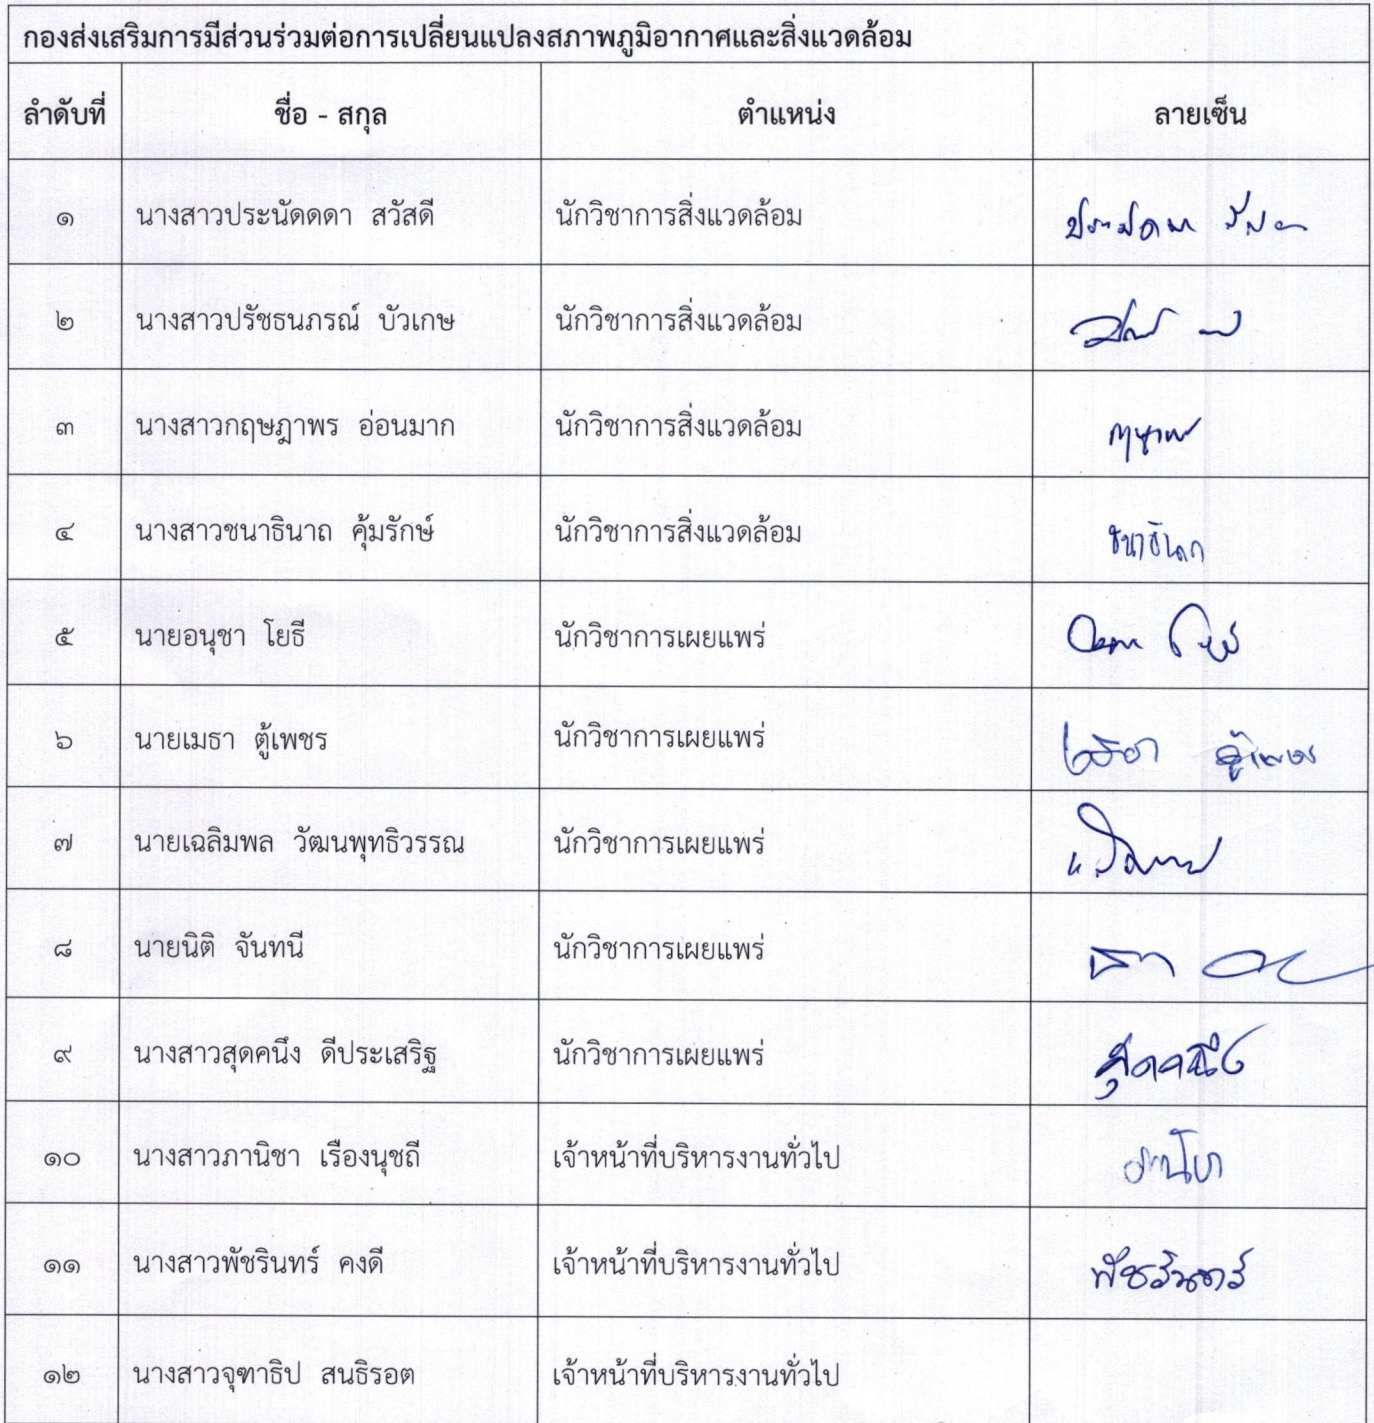 กองส่งเสริมการมีส่วนร่วมต่อการเปลี่ยนแปลงสภาพภูมิอากาศและสิ่งแวดล้อม
ลำดับที่ ชื่อ - สกุล ตำแหน่ง ลายเซ็น
๑ นางสาวประนัดดดา สวัสดี นักวิชาการสิ่งแวดล้อม
๒ นางสาวปรัชธนภรณ์ บัวเกษ นักวิชาการสิ่งแวดล้อม
๓ นางสาวกฤษฎาพร อ่อนมาก นักวิชาการสิ่งแวดล้อม
๔ นางสาวชนาธินาถ คุ้มรักษ์ นักวิชาการสิ่งแวดล้อม
๕ นายอนุชา โยธี นักวิชาการเผยแพร่
๖ นายเมธา ตู้เพชร นักวิชาการเผยแพร่
๗ นายเฉลิมพล วัฒนพุทธิวรรณ นักวิชาการเผยแพร่
๘ นายนิติ จันทนี นักวิชาการเผยแพร่
๙ นางสาวสุดคนึง ดีประเสริฐ นักวิชาการเผยแพร่ สุดคนึง
๑๐ นางสาวภานิชา เรืองนุชถี เจ้าหน้าที่บริหารงานทั่วไป ภานิชา
๑๑ นางสาวพัชรินทร์ คงดี เจ้าหน้าที่บริหารงานทั่วไป พัชรินทร์
๑๒ นางสาวจุฑาธิป สนธิรอต เจ้าหน้าที่บริหารงานทั่วไป